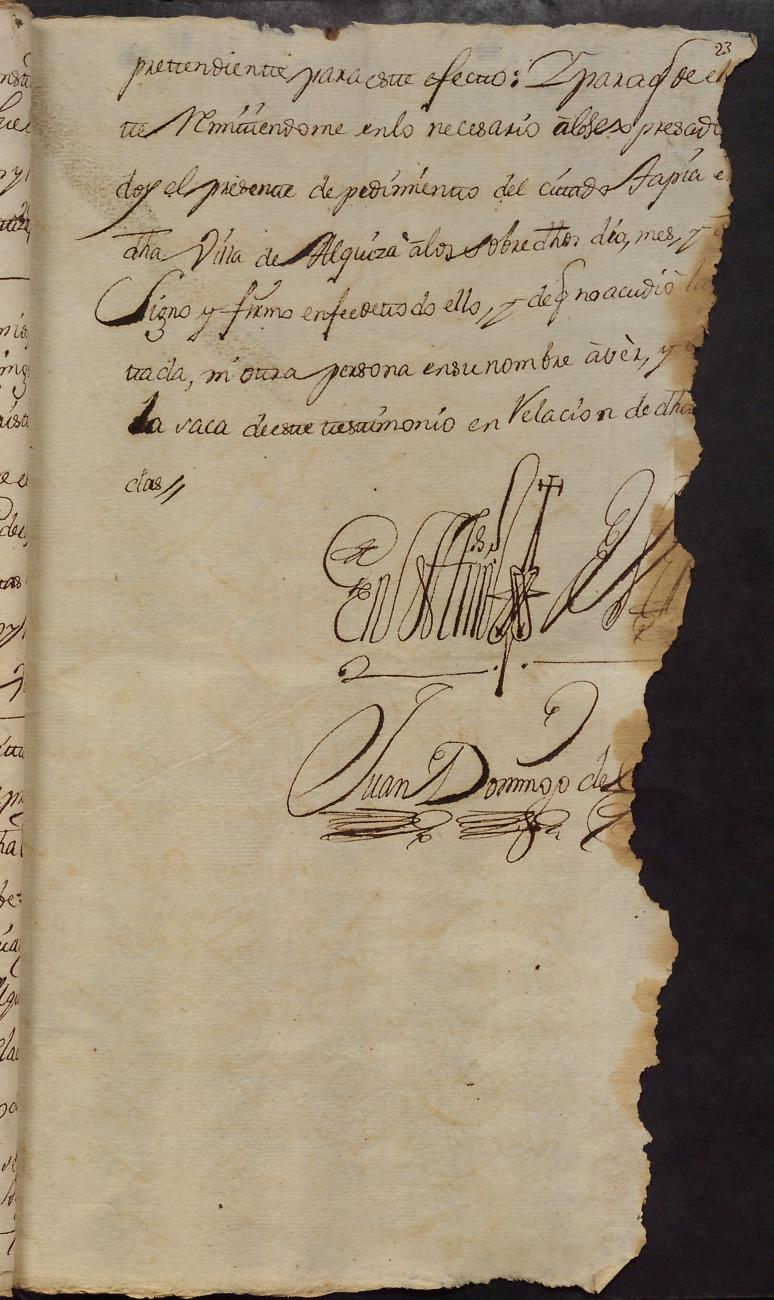 23
prettendiente para este efectto: Y para q̃ de e
te Remitiendome en lo necesario âlos expresad
doy el presente de pedimiento del cittado Tapia e
dh̃a Villa de Alquiza âlos sobre dh̃os dia, mes, y
Signo y firmo en fee de ttodo ello, y de q̃ no acudiô
ttada, ni otra persona en su nombre â vèr, y
la saca de este testimonio en Relacion de dh̃
cias//
En testtim.º de V
Juan Domingo de